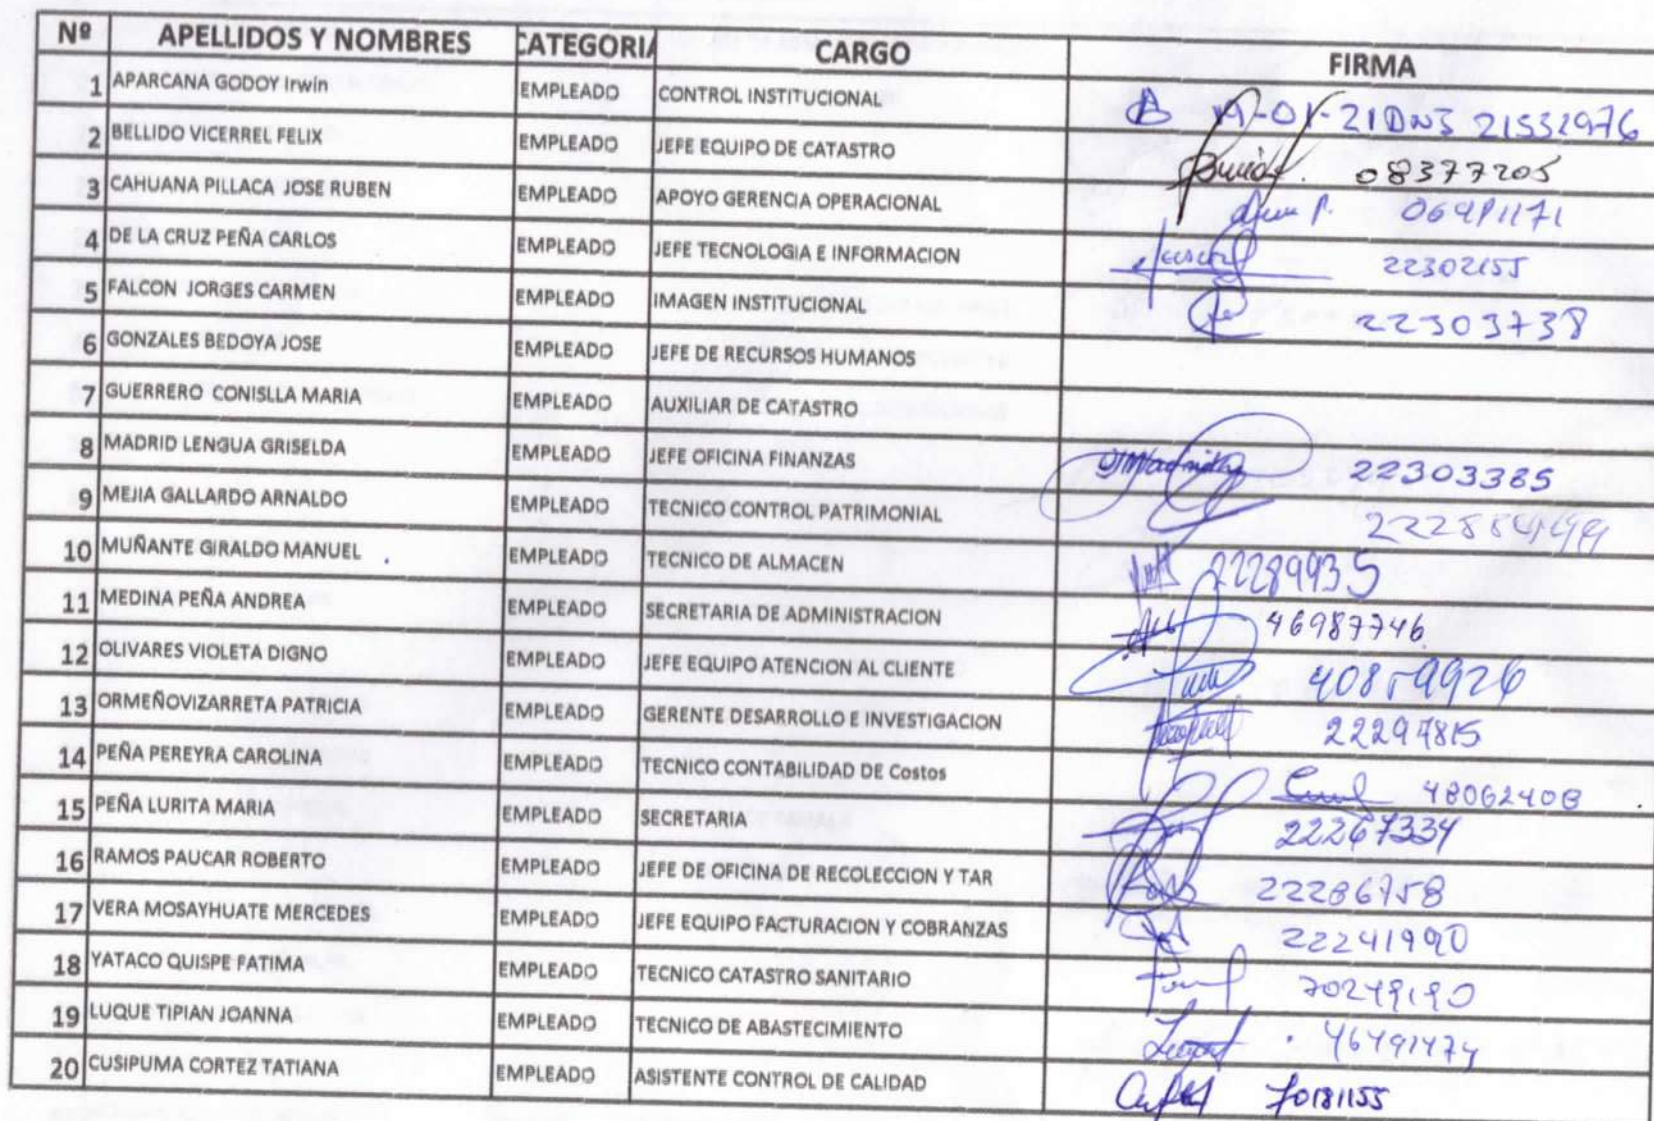 Nº APELLIDOS Y NOMBRES CATEGORIA CARGO FIRMA
1 APARCANA GODOY Irwin EMPLEADO CONTROL INSTITUCIONAL 21532976
2 BELLIDO VICERREL FELIX EMPLEADO JEFE EQUIPO DE CATASTRO 08377205
3 CAHUANA PILLACA JOSE RUBEN EMPLEADO APOYO GERENCIA OPERACIONAL
4 DE LA CRUZ PEÑA CARLOS EMPLEADO JEFE TECNOLOGIA E INFORMACION 22302155
5 FALCON JORGES CARMEN EMPLEADO IMAGEN INSTITUCIONAL 22303738
6 GONZALES BEDOYA JOSE EMPLEADO JEFE DE RECURSOS HUMANOS
7 GUERRERO CONISLLA MARIA EMPLEADO AUXILIAR DE CATASTRO
8 MADRID LENGUA GRISELDA EMPLEADO JEFE OFICINA FINANZAS 22303385
9 MEJIA GALLARDO ARNALDO EMPLEADO TECNICO CONTROL PATRIMONIAL
10 MUÑANTE GIRALDO MANUEL EMPLEADO TECNICO DE ALMACEN 22289935
11 MEDINA PEÑA ANDREA EMPLEADO SECRETARIA DE ADMINISTRACION 46987746
12 OLIVARES VIOLETA DIGNO EMPLEADO JEFE EQUIPO ATENCION AL CLIENTE 40859926
13 ORMEÑOVIZARRETA PATRICIA EMPLEADO GERENTE DESARROLLO E INVESTIGACION 22297815
14 PEÑA PEREYRA CAROLINA EMPLEADO TECNICO CONTABILIDAD DE Costos 48062408
15 PEÑA LURITA MARIA EMPLEADO SECRETARIA 22267334
16 RAMOS PAUCAR ROBERTO EMPLEADO JEFE DE OFICINA DE RECOLECCION Y TAR 22286758
17 VERA MOSAYHUATE MERCEDES EMPLEADO JEFE EQUIPO FACTURACION Y COBRANZAS 22241990
18 YATACO QUISPE FATIMA EMPLEADO TECNICO CATASTRO SANITARIO 70249190
19 LUQUE TIPIAN JOANNA EMPLEADO TECNICO DE ABASTECIMIENTO 46491474
20 CUSIPUMA CORTEZ TATIANA EMPLEADO ASISTENTE CONTROL DE CALIDAD 70181155